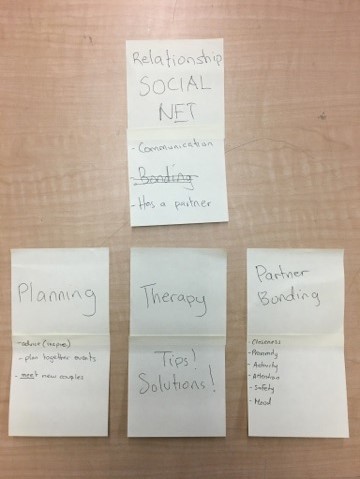 Relationship
SOCIAL
NET
- Communication
- Bonding
- Has a partner
Planning
- advice (inspire)
- plan together events
- meet new couples
Therapy
Tips!
Solutions!
Partner
Bonding
- Closeness
- Proximity
- Activity
- Attention
- Safety
- Mood